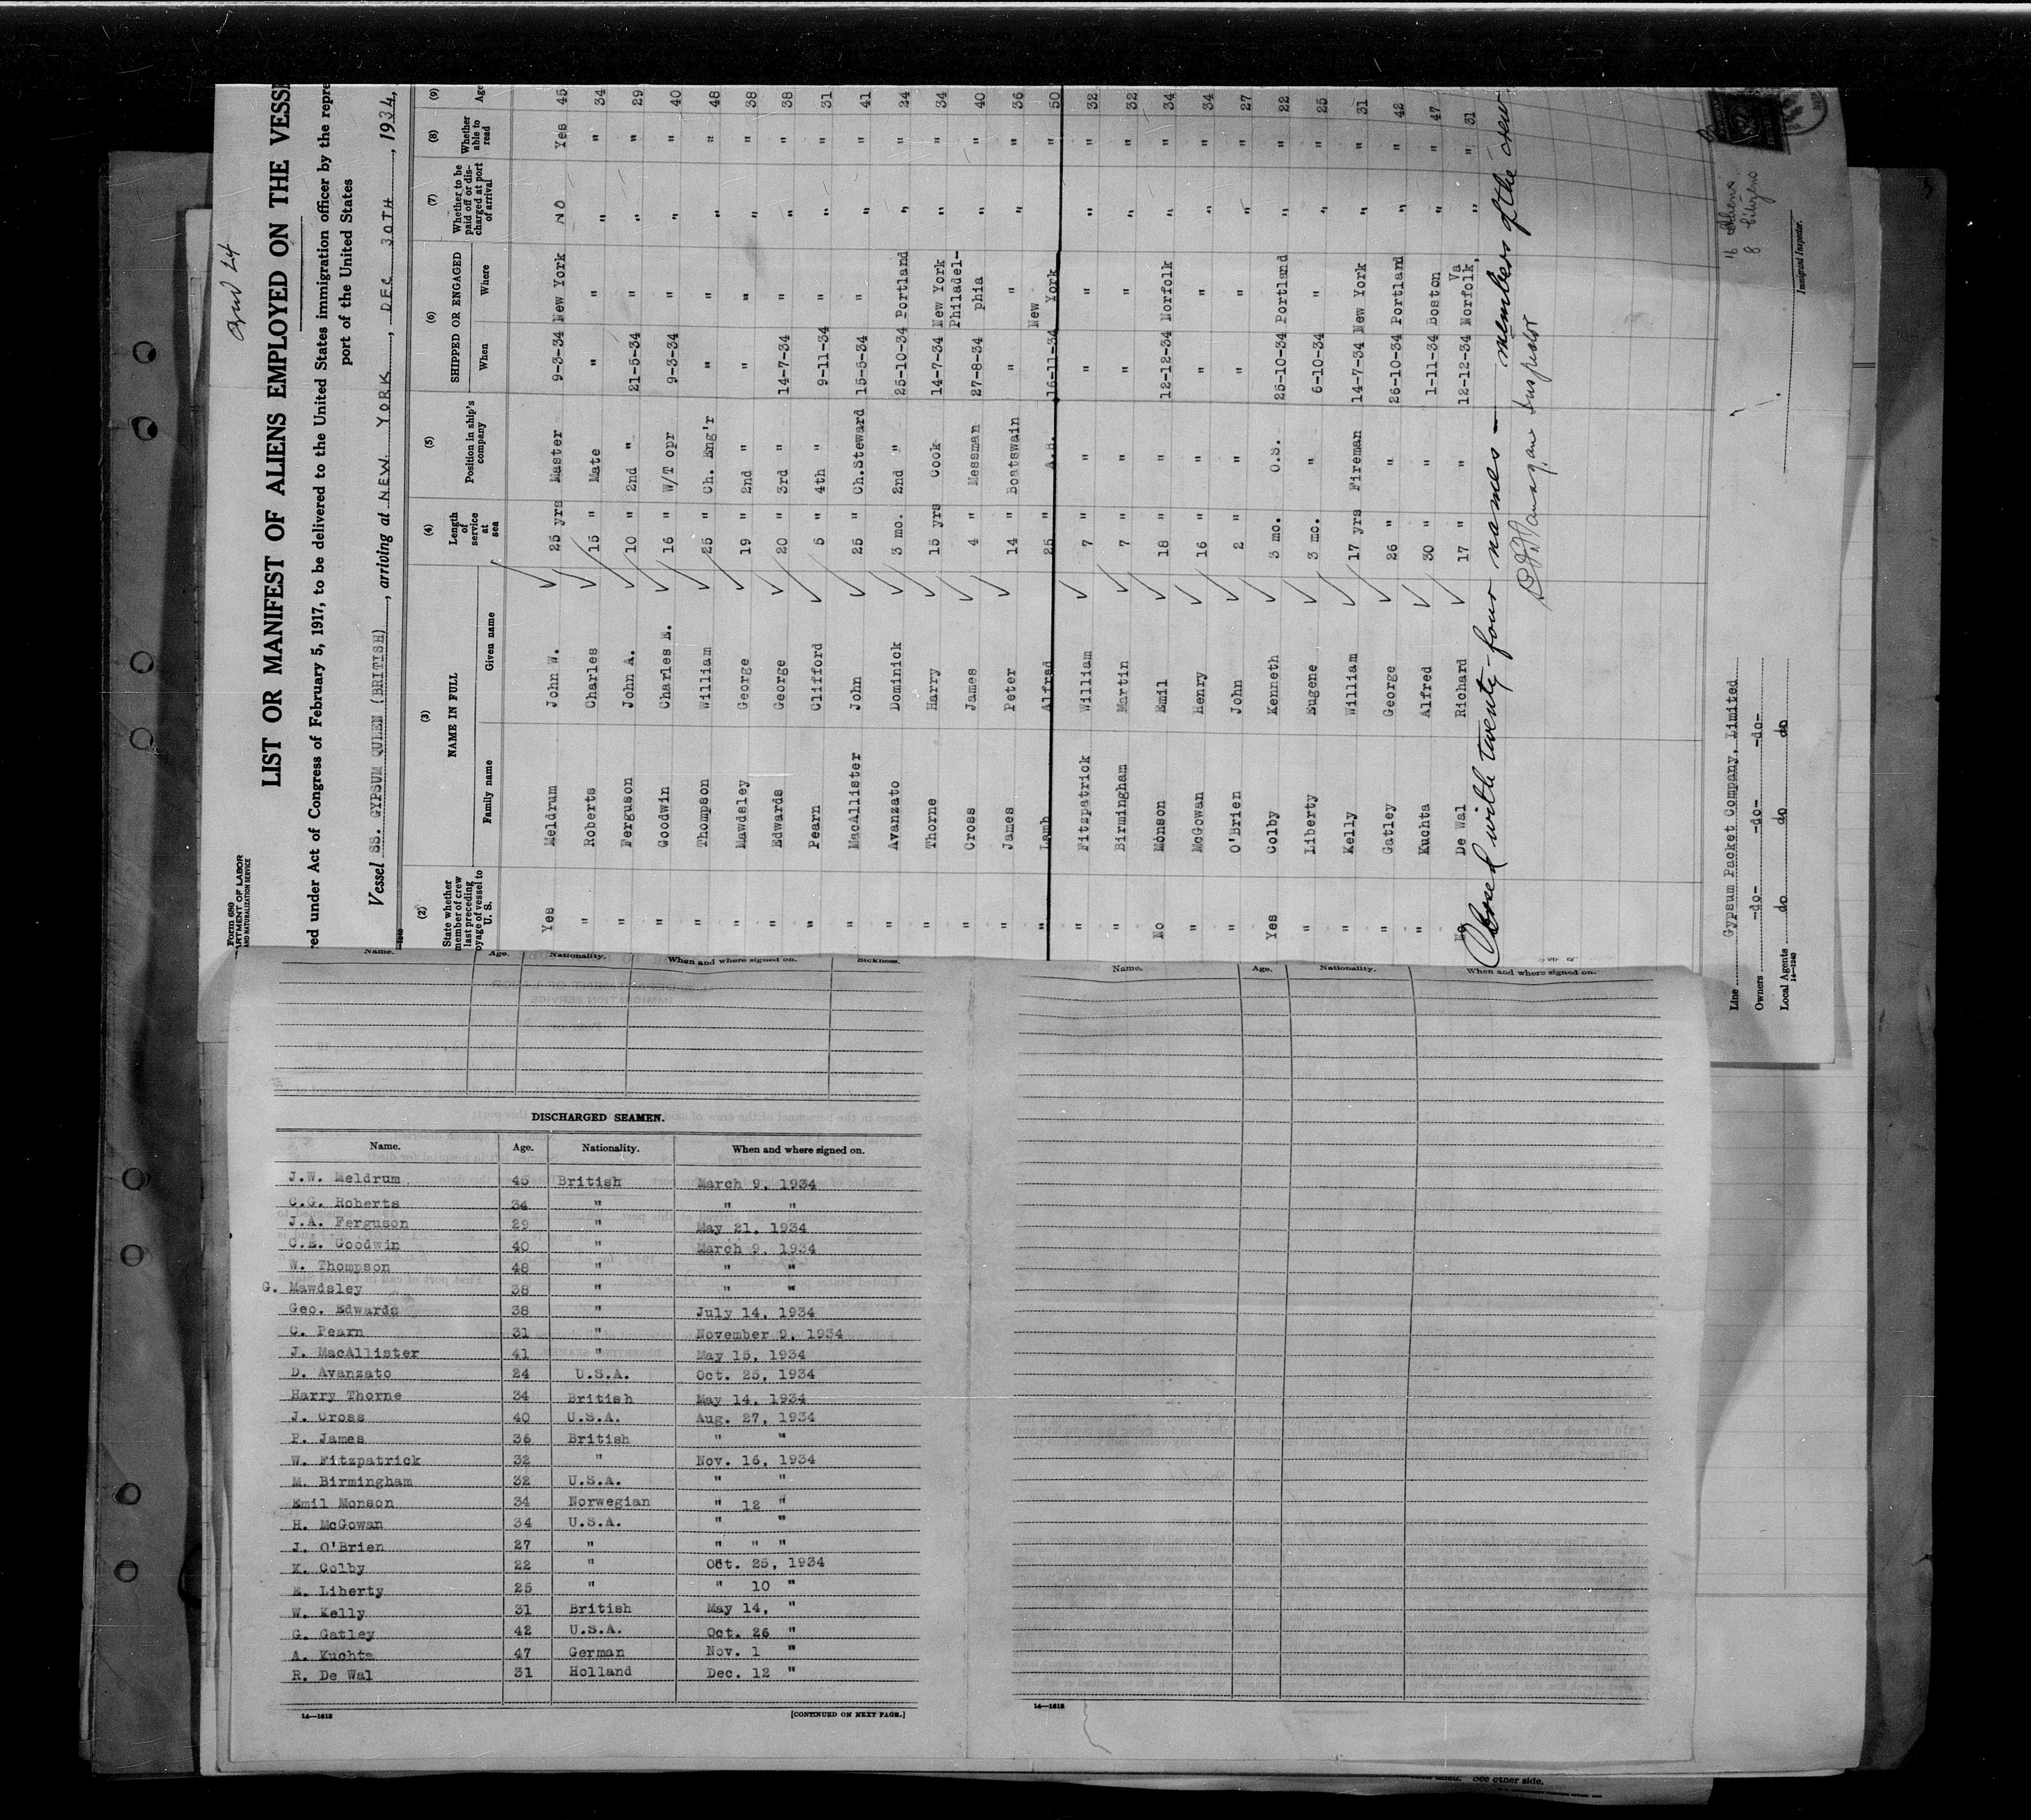 LIST OR MANIFEST OF ALIENS EMPLOYED ON THE VESSE
red under Act of Congress of February 5, 1917, to be delivered to the United States immigration officer by the repre
port of the United States
Vessel SS. GYPSUM QUEEN (BRITISH), arriving at NEW YORK, DEC 30TH, 1934,
Form 680
ARTMENT OF LABOR
AND NATURALIZATION SERVICE
(2) (3) (4) (5) (6) (7) (8) (9)
State whether member of crew last preceding oyage of vessel to U. S. NAME IN FULL Family name Given name Length of service at sea Position in ship's company SHIPPED OR ENGAGED When Where Whether to be paid off or discharged at port of arrival Whether able to read Age
Yes Meldrum John W. 25 yrs Master 9-3-34 New York NO Yes 45
" Roberts Charles 15 " Mate " " " " 34
" Ferguson John A. 10 " 2nd " 21-5-34 " " " 29
" Goodwin Charles E. 16 " W/T opr 9-3-34 " " " 40
" Thompson William 25 " Ch. Eng'r " " " " 48
" Mawdsley George 19 " 2nd " " " " " 38
" Edwards George 20 " 3rd " 14-7-34 " " " 38
" Pearn Clifford 5 " 4th " 9-11-34 " " " 31
" MacAllister John 25 " Ch.Steward 15-5-34 " " " 41
" Avanzato Dominick 3 mo. 2nd " 25-10-34 Portland " " 24
" Thorne Harry 15 yrs Cook 14-7-34 New York " " 34
" Cross James 4 " Messman 27-8-34 Philadel-phia " " 40
" James Peter 14 " Boatswain " " " " 36
" Lamb Alfred 25 " A.B. 16-11-34 New York " 50
" Fitzpatrick William 7 " " " " " " 32
" Birmingham Martin 7 " " " " " " 32
No Monson Emil 18 " " 12-12-34 Norfolk " " 34
" McGowan Henry 16 " " " " " " 34
" O'Brien John 2 " " " " " " 27
Yes Colby Kenneth 3 mo. O.S. 25-10-34 Portland " " 22
" Liberty Eugene 3 mo. " 6-10-34 " " " 25
" Kelly William 17 yrs Fireman 14-7-34 New York " " 31
" Gatley George 26 " " 26-10-34 Portland " " 42
" Kuchta Alfred 30 " " 1-11-34 Boston " " 47
No De Wal Richard 17 " " 12-12-34 Norfolk, Va " " 31
Closed with twenty-four names — members of the crew.
Inspector
16 Aliens
8 Citizens
Immigrant Inspector.
Line Gypsum Packet Company, Limited
Owners -do- -do- -do-
Local Agents do do do
14—1240
Name. Age. Nationality. When and where signed on. Sickness.
Name. Age. Nationality. When and where signed on.
DISCHARGED SEAMEN.
Name. Age. Nationality. When and where signed on.
J.W. Meldrum 45 British March 9, 1934
C.G. Roberts 34 " " "
J.A. Ferguson 29 " May 21, 1934
C.E. Goodwin 40 " March 9, 1934
W. Thompson 48 " " "
G. Mawdsley 38 " " "
Geo. Edwards 38 " July 14, 1934
C. Pearn 31 " November 9, 1934
J. MacAllister 41 " May 15, 1934
D. Avanzato 24 U.S.A. Oct. 25, 1934
Harry Thorne 34 British May 14, 1934
J. Cross 40 U.S.A. Aug. 27, 1934
P. James 36 British " "
W. Fitzpatrick 32 " Nov. 16, 1934
M. Birmingham 32 U.S.A. " "
Emil Monson 34 Norwegian " 12 "
H. McGowan 34 U.S.A. " "
J. O'Brien 27 " " " "
K. Colby 22 " Oct. 25, 1934
E. Liberty 25 " " 10 "
W. Kelly 31 British May 14, "
G. Gatley 42 U.S.A. Oct. 26 "
A. Kuchta 47 German Nov. 1 "
R. De Wal 31 Holland Dec. 12 "
14—1613 [CONTINUED ON NEXT PAGE.]
14—1613
See other side.